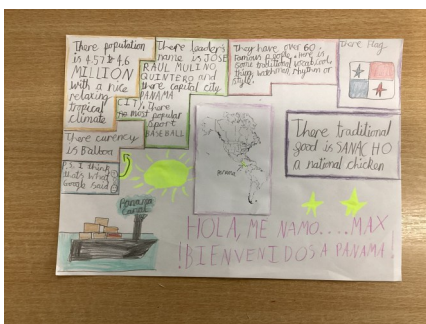 There population
is 4.57 to 4.6
MILLION
with a nice
relaxing
tropical
climate
There leader's
name is JOSE
RAUL MULINO,
QUINTERO and
there capital city
PANAMA
CITY. There
most popular
sport
BASEBALL
They have over 60
famous people. Here is
some traditional
or
style.
There Flag
There curency
is Balboa
P.S. I think
thats what
Google said
There traditional
good is SANACHO
a national chicken
PANAMA
Panama
Canal
HOLA, ME NAMO....MAX
!BIENVENIDOS A PANAMA!